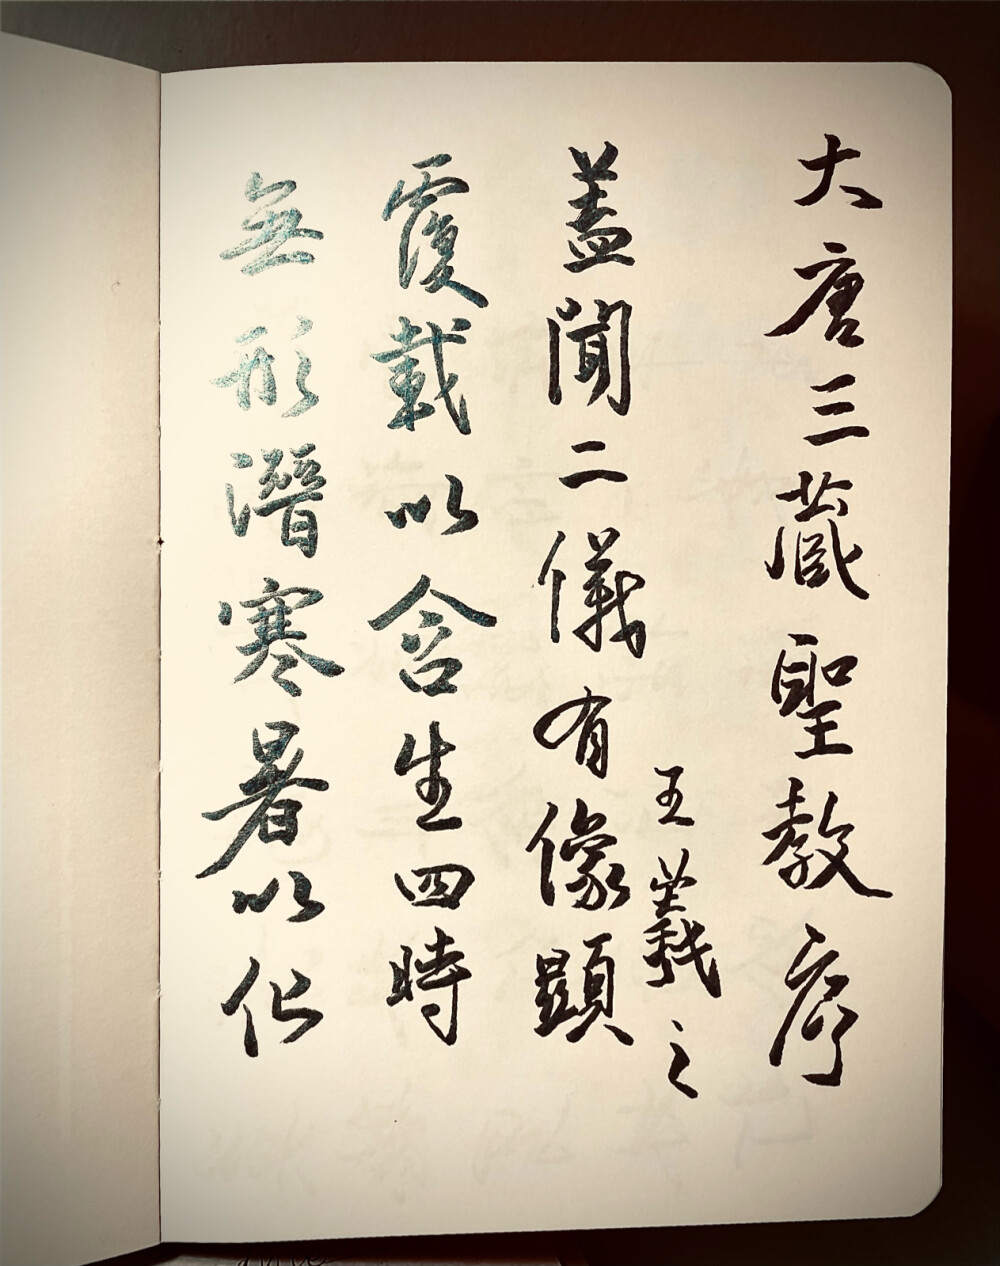 大唐三藏聖教序
王羲之
蓋聞二儀有像顯
覆載以含生四時
無形潛寒暑以化